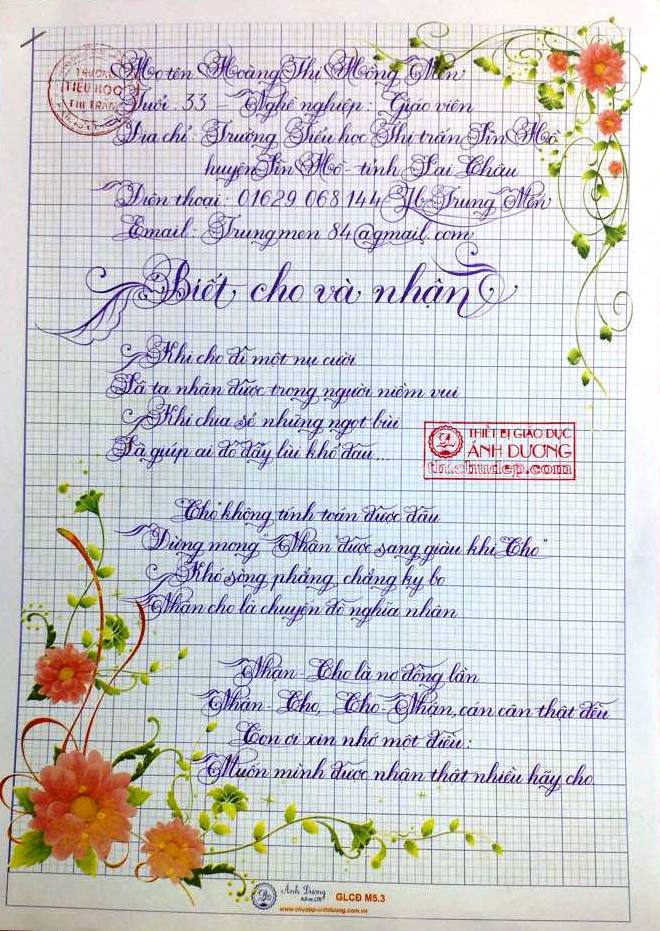 Họ tên Hoàng Thị Hồng Mến
TRƯỜNG
TIỂU HỌC
THỊ TRẤN
Tuổi : 33 - Nghề nghiệp : Giáo viên
Địa chỉ : Trường Tiểu học Thị trấn Sìn Hồ
huyện Sìn Hồ - tỉnh Lai Châu
Điện thoại : 01629 068 144 Fb Trung Mến
Email : Trungmen 84@gmail.com
Biết cho và nhận
Khi cho đi một nụ cười
Là ta nhận được trong người niềm vui
Khi chia sẻ những ngọt bùi
Là giúp ai đó đẩy lùi khổ đau...
THIẾT BỊ GIÁO DỤC
ÁNH DƯƠNG
thichudep.com
"Cho" không tính toán được đâu
Đừng mong "Nhận" được sang giàu khi "Cho"
Khó sòng phẳng, chẳng ky bo
Nhận cho là chuyện đò nghĩa nhân
Nhận - Cho là nợ đồng lần
Nhận - Cho, Cho - Nhận, cán cân thật đều
Con ơi xin nhớ một điều :
Muốn mình được nhận thật nhiều hãy cho.
Ánh Dương
GLCĐ M5.3
www.chudep-anhduong.com.vn